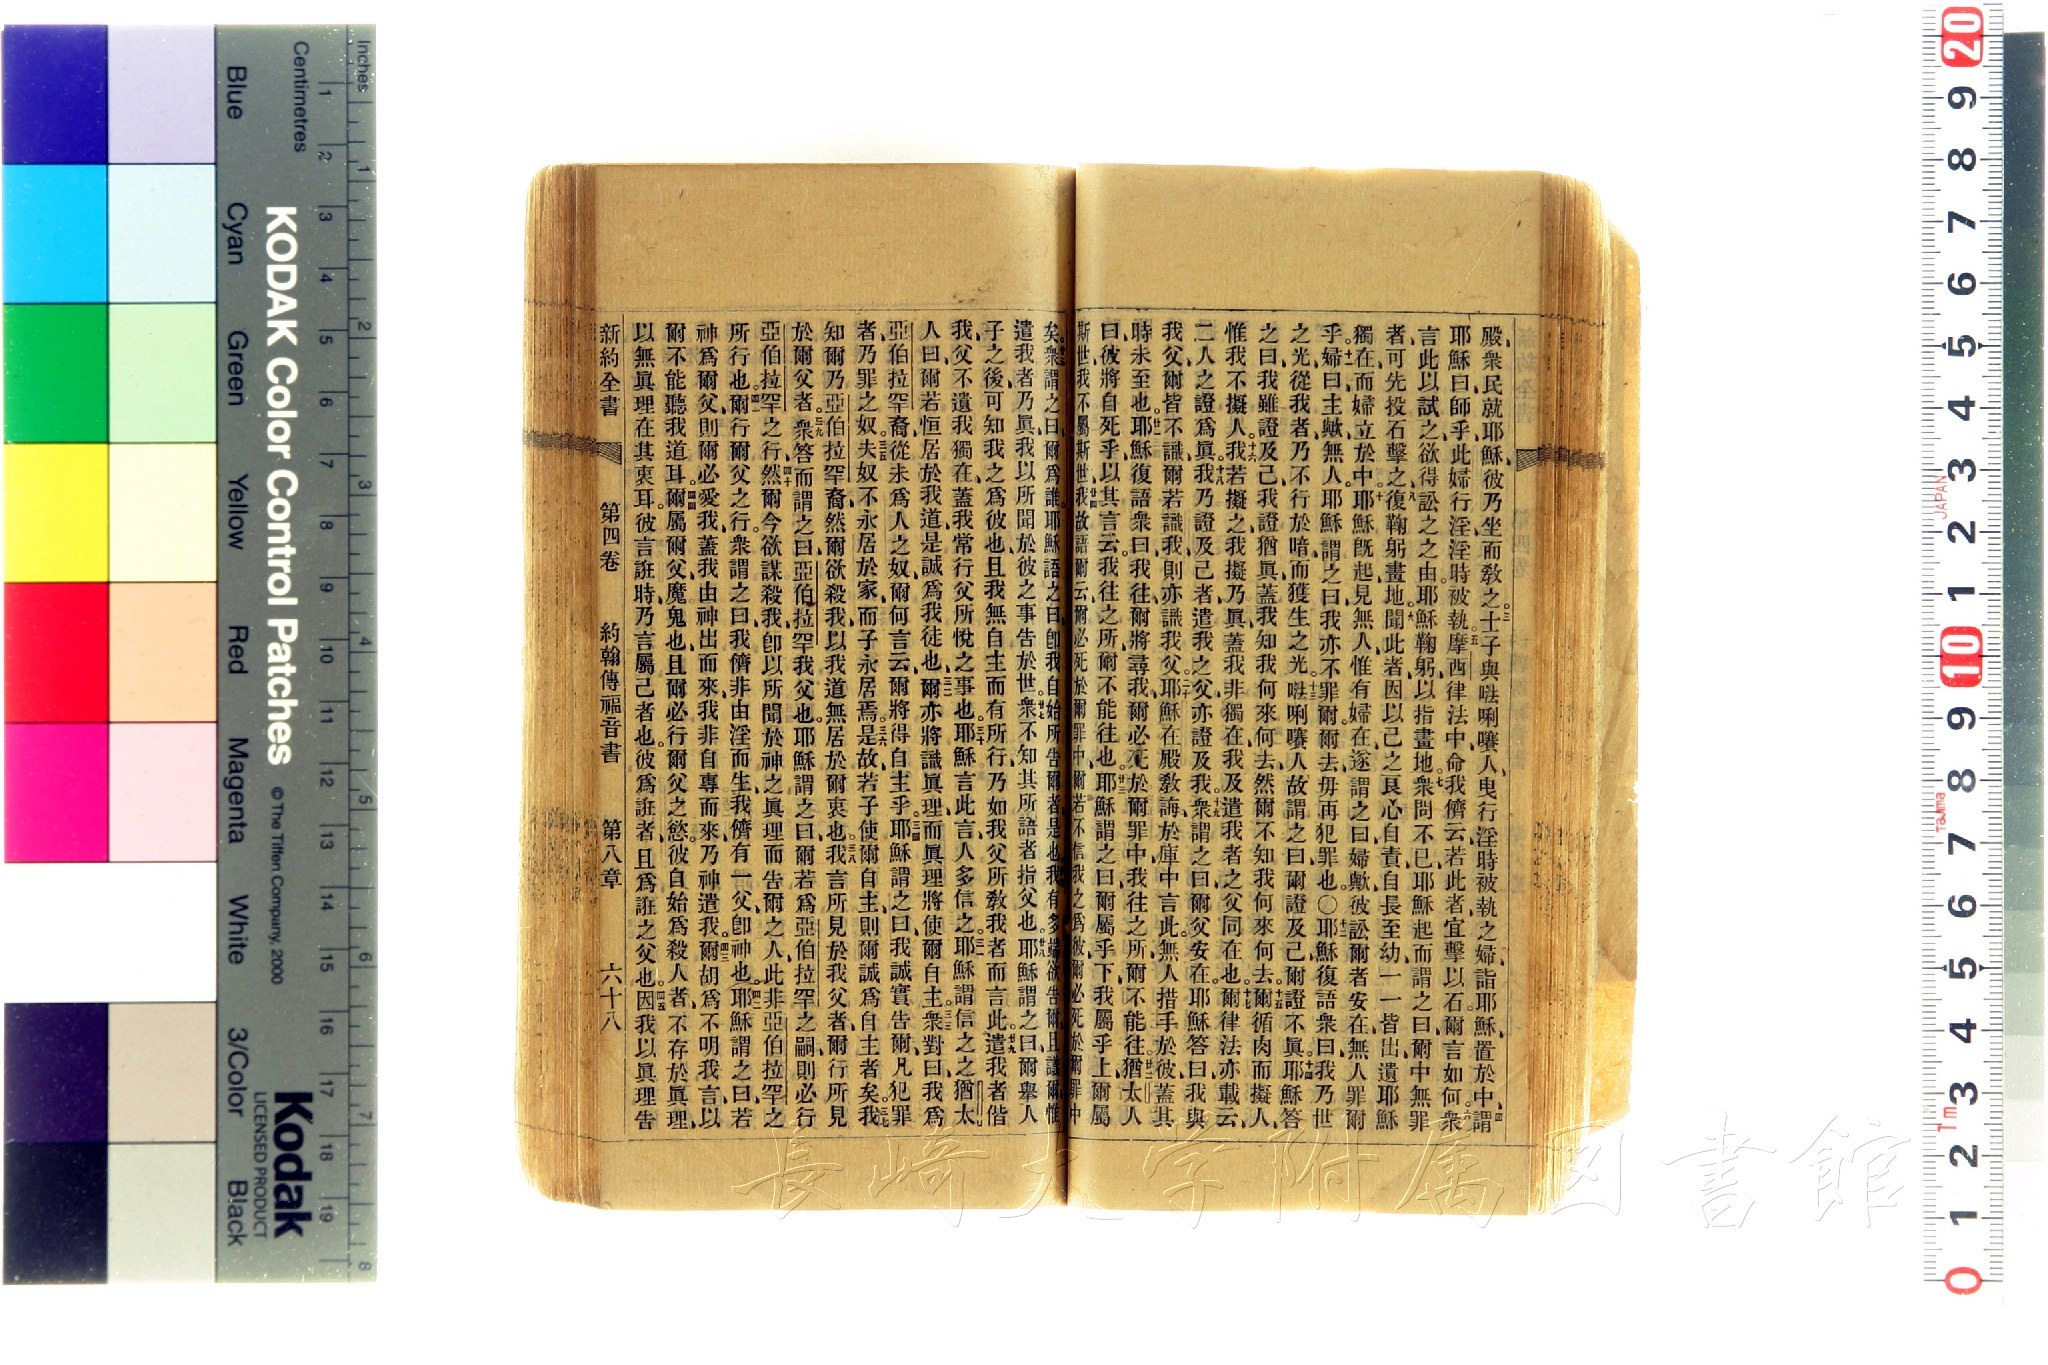 殿、衆民就耶穌、彼乃坐而敎之。三士子與㗖唎㘔人、曳行淫時被執之婦詣耶穌、置於中、四謂
耶穌曰、師乎、此婦行淫、淫時被執、五摩西律法中、命我儕云、若此者宜擊以石、爾言如何。六衆
言此以試之、欲得訟之之由、耶穌鞠躬、以指畫地、七衆問不已、耶穌起而謂之曰、爾中無罪
者、可先投石擊之、八復鞠躬畫地、九聞此者、因以己之良心自責、自長至幼、一一皆出、遺耶穌
獨在、而婦立於中、十耶穌旣起、見無人、惟有婦在、遂謂之曰、婦歟、彼訟爾者安在、無人罪爾
乎。十一婦曰、主歟、無人、耶穌謂之曰、我亦不罪爾、爾去、毋再犯罪也。〇十二耶穌復語衆曰、我乃世
之光、從我者、乃不行於暗、而獲生之光。十三㗖唎㘔人故謂之曰、爾證及己、爾證不眞。十四耶穌答
之曰、我雖證及己、我證猶眞、蓋我知我何來何去、然爾不知我何來何去。十五爾循肉而擬人、
惟我不擬人、十六我若擬之、我擬乃眞、蓋我非獨在、我及遣我者之父同在也。十七爾律法亦載云、
二人之證爲眞、十八我乃證及己者、遣我之父、亦證及我。十九衆謂之曰、爾父安在、耶穌答曰、我與
我父、爾皆不識、爾若識我、則亦識我父。二十耶穌在殿敎誨、於庫中言此、無人措手於彼、蓋其
時未至也。廿一耶穌復語衆曰、我往、爾將尋我、爾必死於爾罪中、我往之所、爾不能往。廿二猶太人
曰、彼將自死乎、以其言云、我往之所、爾不能往也。廿三耶穌謂之曰、爾屬乎下、我屬乎上、爾屬
斯世、我不屬斯世、廿四我故語爾云、爾必死於爾罪中、爾若不信我之爲彼、爾必死於爾罪中
矣。廿五衆謂之曰、爾爲誰、耶穌語之曰、卽我自始所告爾者是也。廿六我有多端欲告爾、且議爾、惟
遣我者乃眞、我以所聞於彼之事告於世。廿七衆不知其所語者指父也。廿八耶穌謂之曰、爾舉人
子之後、可知我之爲彼也、且我無自主而有所行、乃如我父所敎我者而言此。廿九遣我者偕
我、父不遺我獨在、蓋我常行父所悅之事也。三十耶穌言此、言人多信之。三一耶穌謂信之之猶太
人曰、爾若恒居於我道、是誠爲我徒也、三二爾亦將識眞理、而眞理將使爾自主。三三衆對曰、我爲
亞伯拉罕裔、從未爲人之奴、爾何言云、爾將得自主乎。三四耶穌謂之曰、我誠實告爾、凡犯罪
者、乃罪之奴、三五夫奴不永居於家、而子永居焉。三六是故若子使爾自主、則爾誠爲自主者矣。三七我
知爾乃亞伯拉罕裔、然爾欲殺我、以我道無居於爾衷也。三八我言所見於我父者、爾行所見
於爾父者。三九衆答而謂之曰、亞伯拉罕我父也、耶穌謂之曰、爾若爲亞伯拉罕之嗣、則必行
亞伯拉罕之行、四十然爾今欲謀殺我、卽以所聞於神之眞理而告爾之人、此非亞伯拉罕之
所行也。四一爾行爾父之行、衆謂之曰、我儕非由淫而生、我儕有一父、卽神也。四二耶穌謂之曰、若
神爲爾父、則爾必愛我、蓋我由神出而來、我非自專而來、乃神遣我。四三爾胡爲不明我言、以
爾不能聽我道耳。四四爾屬爾父魔鬼也、且爾必行爾父之慾、彼自始爲殺人者、不存於眞理、
以無眞理在其衷耳、彼言誑時、乃言屬己者也、彼爲誑者、且爲誑之父也。四五因我以眞理告
新約全書　第四卷　約翰傳福音書　第八章　六十八
長崎大学附属図書館
KODAK Color Control Patches
© The Tiffen Company, 2000
Kodak
LICENSED PRODUCT
Inches
Centimetres
Blue
Cyan
Green
Yellow
Red
Magenta
White
3/Color
Black
1 2 3 4 5 6 7 8
1 2 3 4 5 6 7 8 9 10 11 12 13 14 15 16 17 18 19
20 9 8 7 6 5 4 3 2 1 10 9 8 7 6 5 4 3 2 1 0
JAPAN
Tajima
Tm